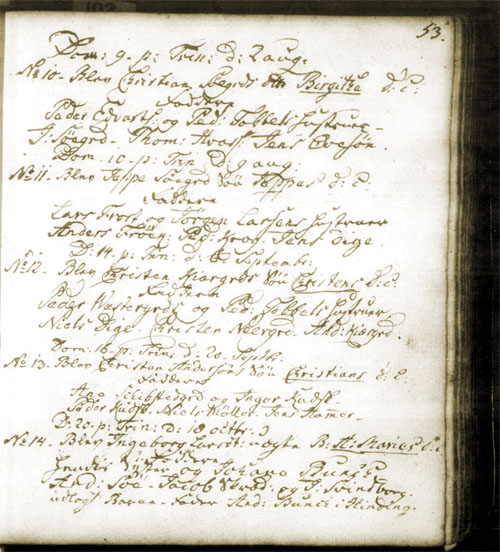 53.
Dom: 9. p: Trin: d: 2 aug:
No 10. Blev Christian Skegrds dtr Birgitte d: C:
Faddere
Peder Edvarts: og Ped: Tolbels hustruer
J: Skegrd. Thom: Hvas. Jens Ovesøn.
Dom: 10. p: Trin d: 9 aug:
No 11. Blev Jeppe Søegrd Søn Jeppes d: C:
Faddere
Lars Frost og Jørgen Larsens hustruer
Anders Trøey. Ped: Krog. Jens Dige.
D: 14. p: Trin: d: 6 Septemb:
No 12. Blev Christen Kiærgrds Søn Christens d: C:
Faddere
Peder Westergrds og Ped: Tolbels hustruer
Niels Dige. Christen Neergrd. And: Kiærgrd.
Dom: 16. p: Trin: d. 20. Septb:
No 13. Blev Christen Andersøns Søn Christians d: C:
Faddere
Skibstedgrd og Inger Kudsk
Peder Kudsk. Niels Møller. Jens Hamer.
D: 20. p: Trin: D: 18 octbr:
No 14. Blev Ingeborg Larsdt: uægte B: A: Maries d: C:
Faddere
og Johane Bunde
And: Søe. Jacob og J: Svindborg.
udlagt Barne-Fader And: Bunde i Hinding.